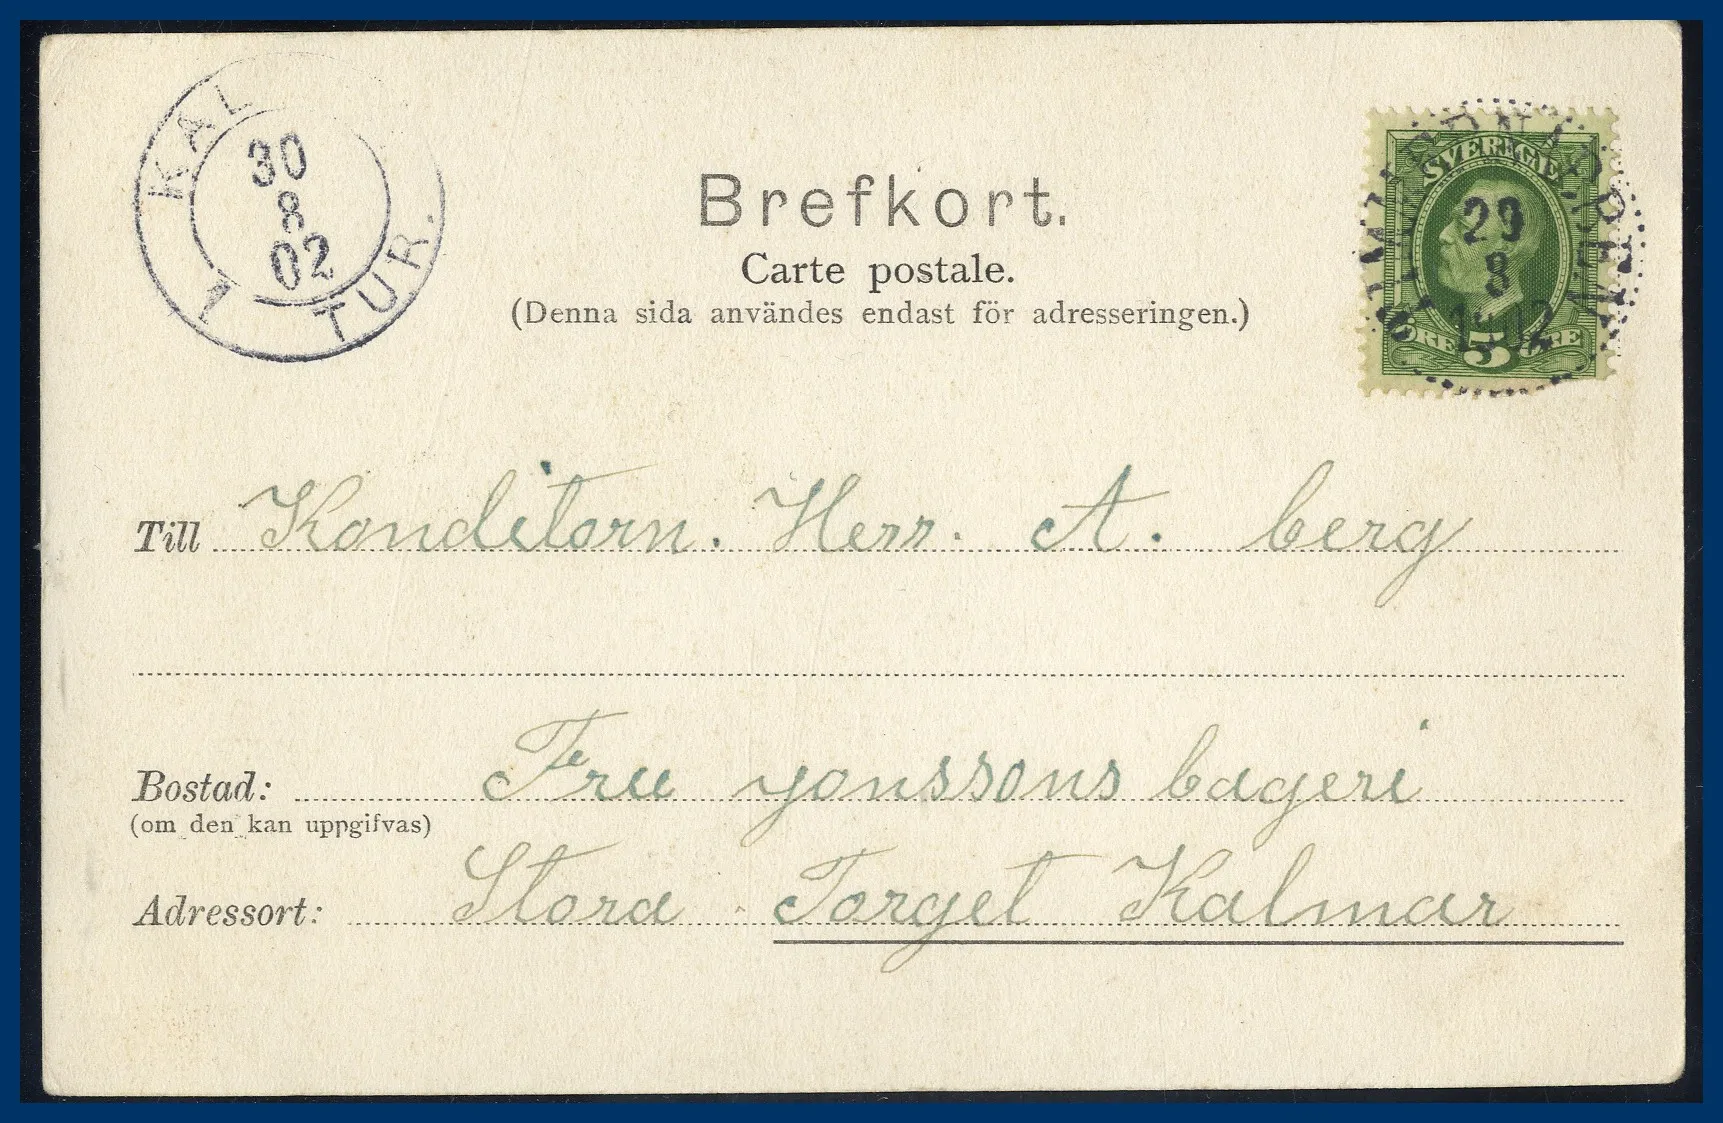 KAL
30
8
02
1 TUR.
SVERIGE
29
8
1902
ÖRE 5 ÖRE
Brefkort.
Carte postale.
(Denna sida användes endast för adresseringen.)
Till Konditorn. Herr. A. berg
Bostad: Fru yonssons bageri
(om den kan uppgifvas)
Adressort: Stora Torget Kalmar